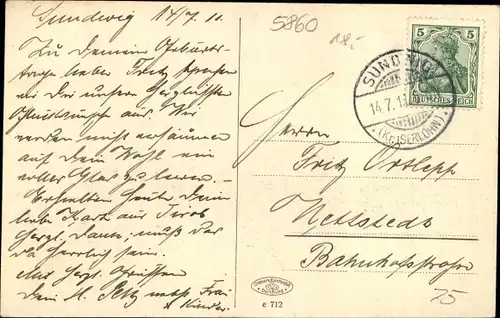 Sundwig 14/7. 11.
Zu deinem Geburts-
tage lieber Fritz sprechen
wir dir unsere herzlichsten
Glückwünsche aus. Wir
werden nicht versäumen
auf dein Wohl ein
Glas zu leeren.
Erhalten heute deine
liebe Karte aus Tirol
Herzl. Dank, muß
da herrlich sein.
Mit herzl. Grüssen
dein Frau
Kinder.
5860
18,-
5 5
DEUTSCHES REICH
SUNDWIG
14.7.11
(KR. ISERLOHN)
Herrn
Fritz Ortlepp
Nettstedt
Bahnhofstrasse
e 712
75